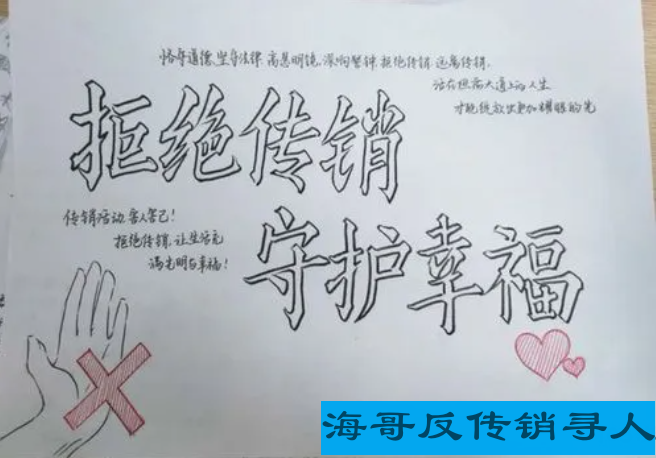 恪守道德,坚守法律,高悬明镜,深响警钟,拒绝传销,远离传销,
活在洒满大道上的人生
才能绽放出更加耀眼的光
拒绝传销
传销活动,害人害己!
拒绝传销,让生活充
满光明与幸福!
守护幸福
海哥反传销寻人